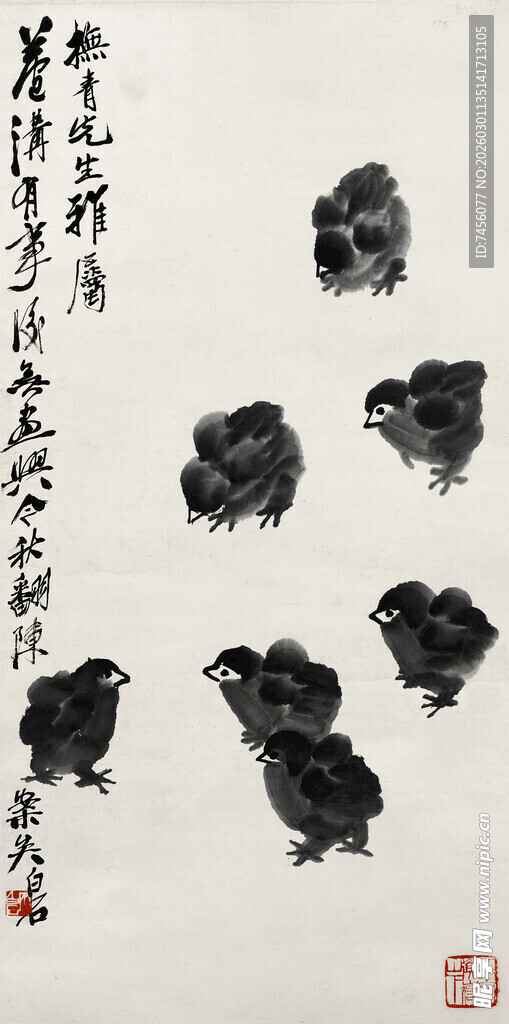 撫青先生雅屬
蘆溝有事後無畫興今秋翻陳
案矣白石
ID:7456077 NO:20260301135141713105
昵享网 www.nipic.cn